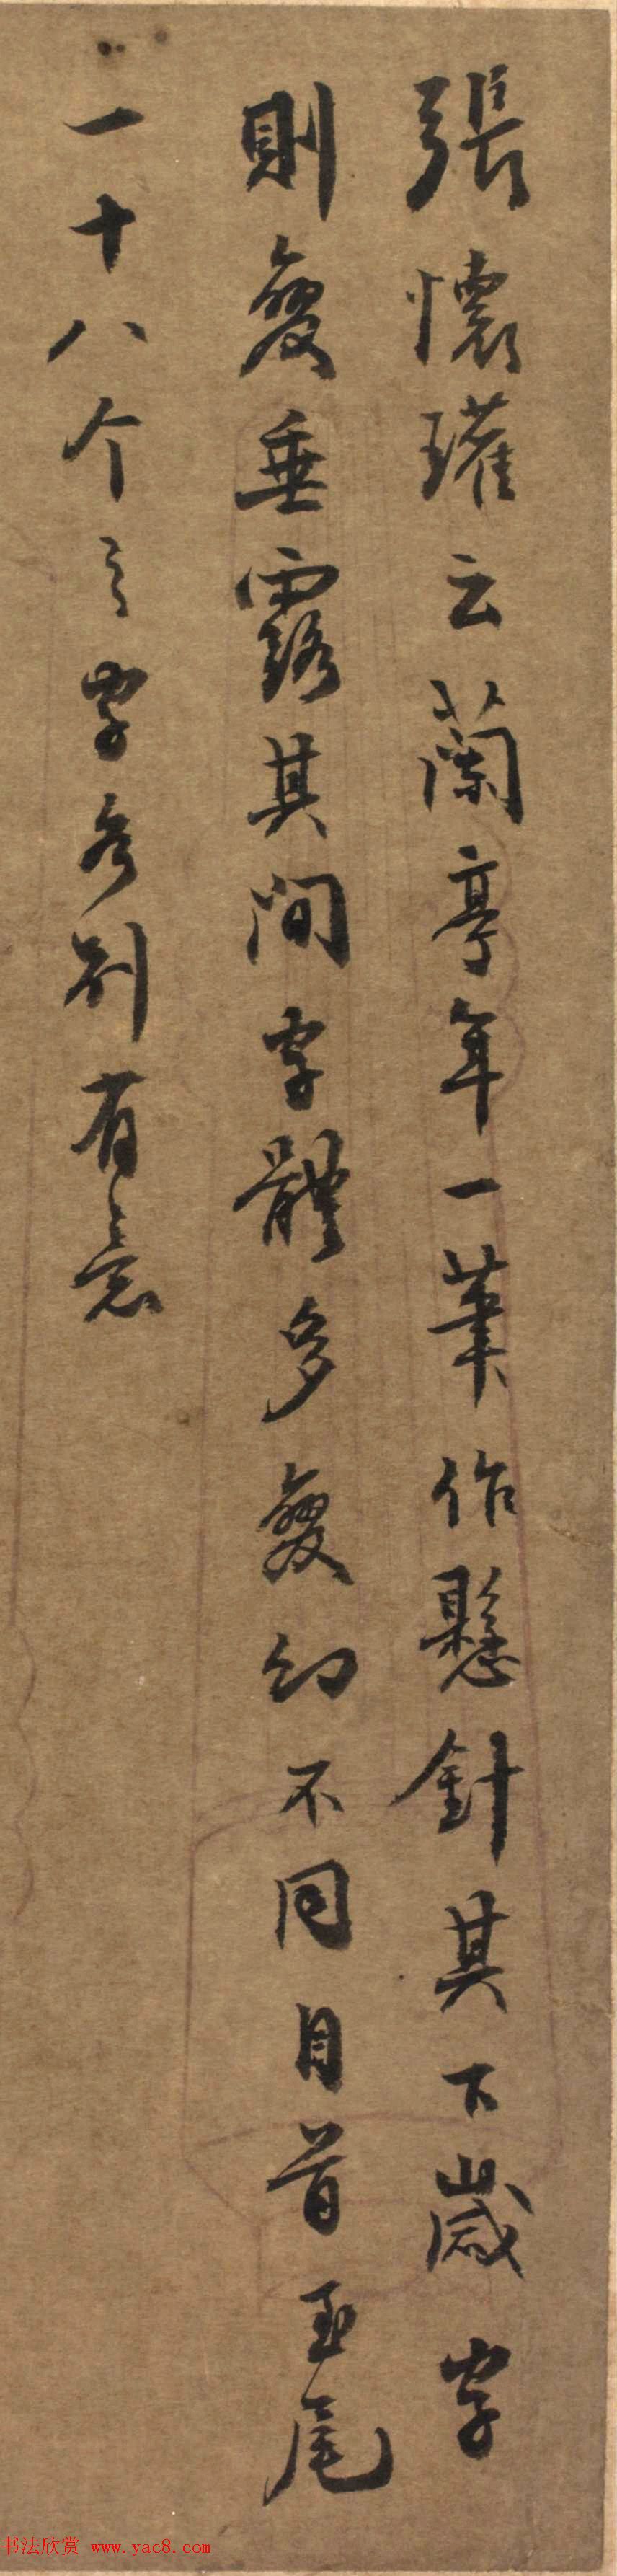 張懷瓘云蘭亭年一筆作懸針其下歲字
則變垂露其間字體多變幻不同自首至尾
一十八个之字各別有意
书法欣赏 www.yac8.com